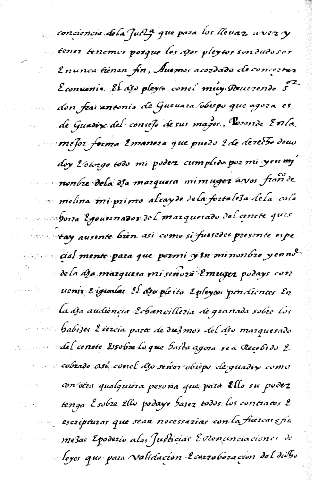 conciencia de la Justª que para los llevar a ver y
tener tenemos porque los dhos pleytos son dudosos
E nunca tienen fin, Avemos acordado de concertar
E convenir. El dho pleyto con el muy Reverendo sr
don fray antonio de Guevara obispo que agora es
de Guadix del consejo de sus magtes, Por ende En la
mejor forma E manera que puedo E de derecho devo
doy E otorgo todo mi poder cumplido por mi y en mi
nombre de la dha marquesa mi muger a vos franco de
molina mi primo alcayde de la fortaleza de la cala
horra E governador del marquesado del cenete que es
tay ausente bien asi como si fuesedes presente espe
cial mente para que por mi y En mi nombre y en no
de la dha marquesa mi señora E muger podays con
venir E igualar El dho pleito E pleytos pendientes En
la dha audiencia E chancilleria de granada sobre los
habices E tercia parte de diezmos del dho marquesado
del cenete E sobre lo que hasta agora se a Recebido E
cobrado asi con el dho señor obispo de guadix como
con otra qualquiera persona que para Ello su poder
tenga E sobre Ello podays hazer todos los contratos E
escripturas que sean necessarias con las fuerças e fir
mezas E poderio a las Justicias E Renunciaciones de
leyes que para validacion E corroboracion del dicho